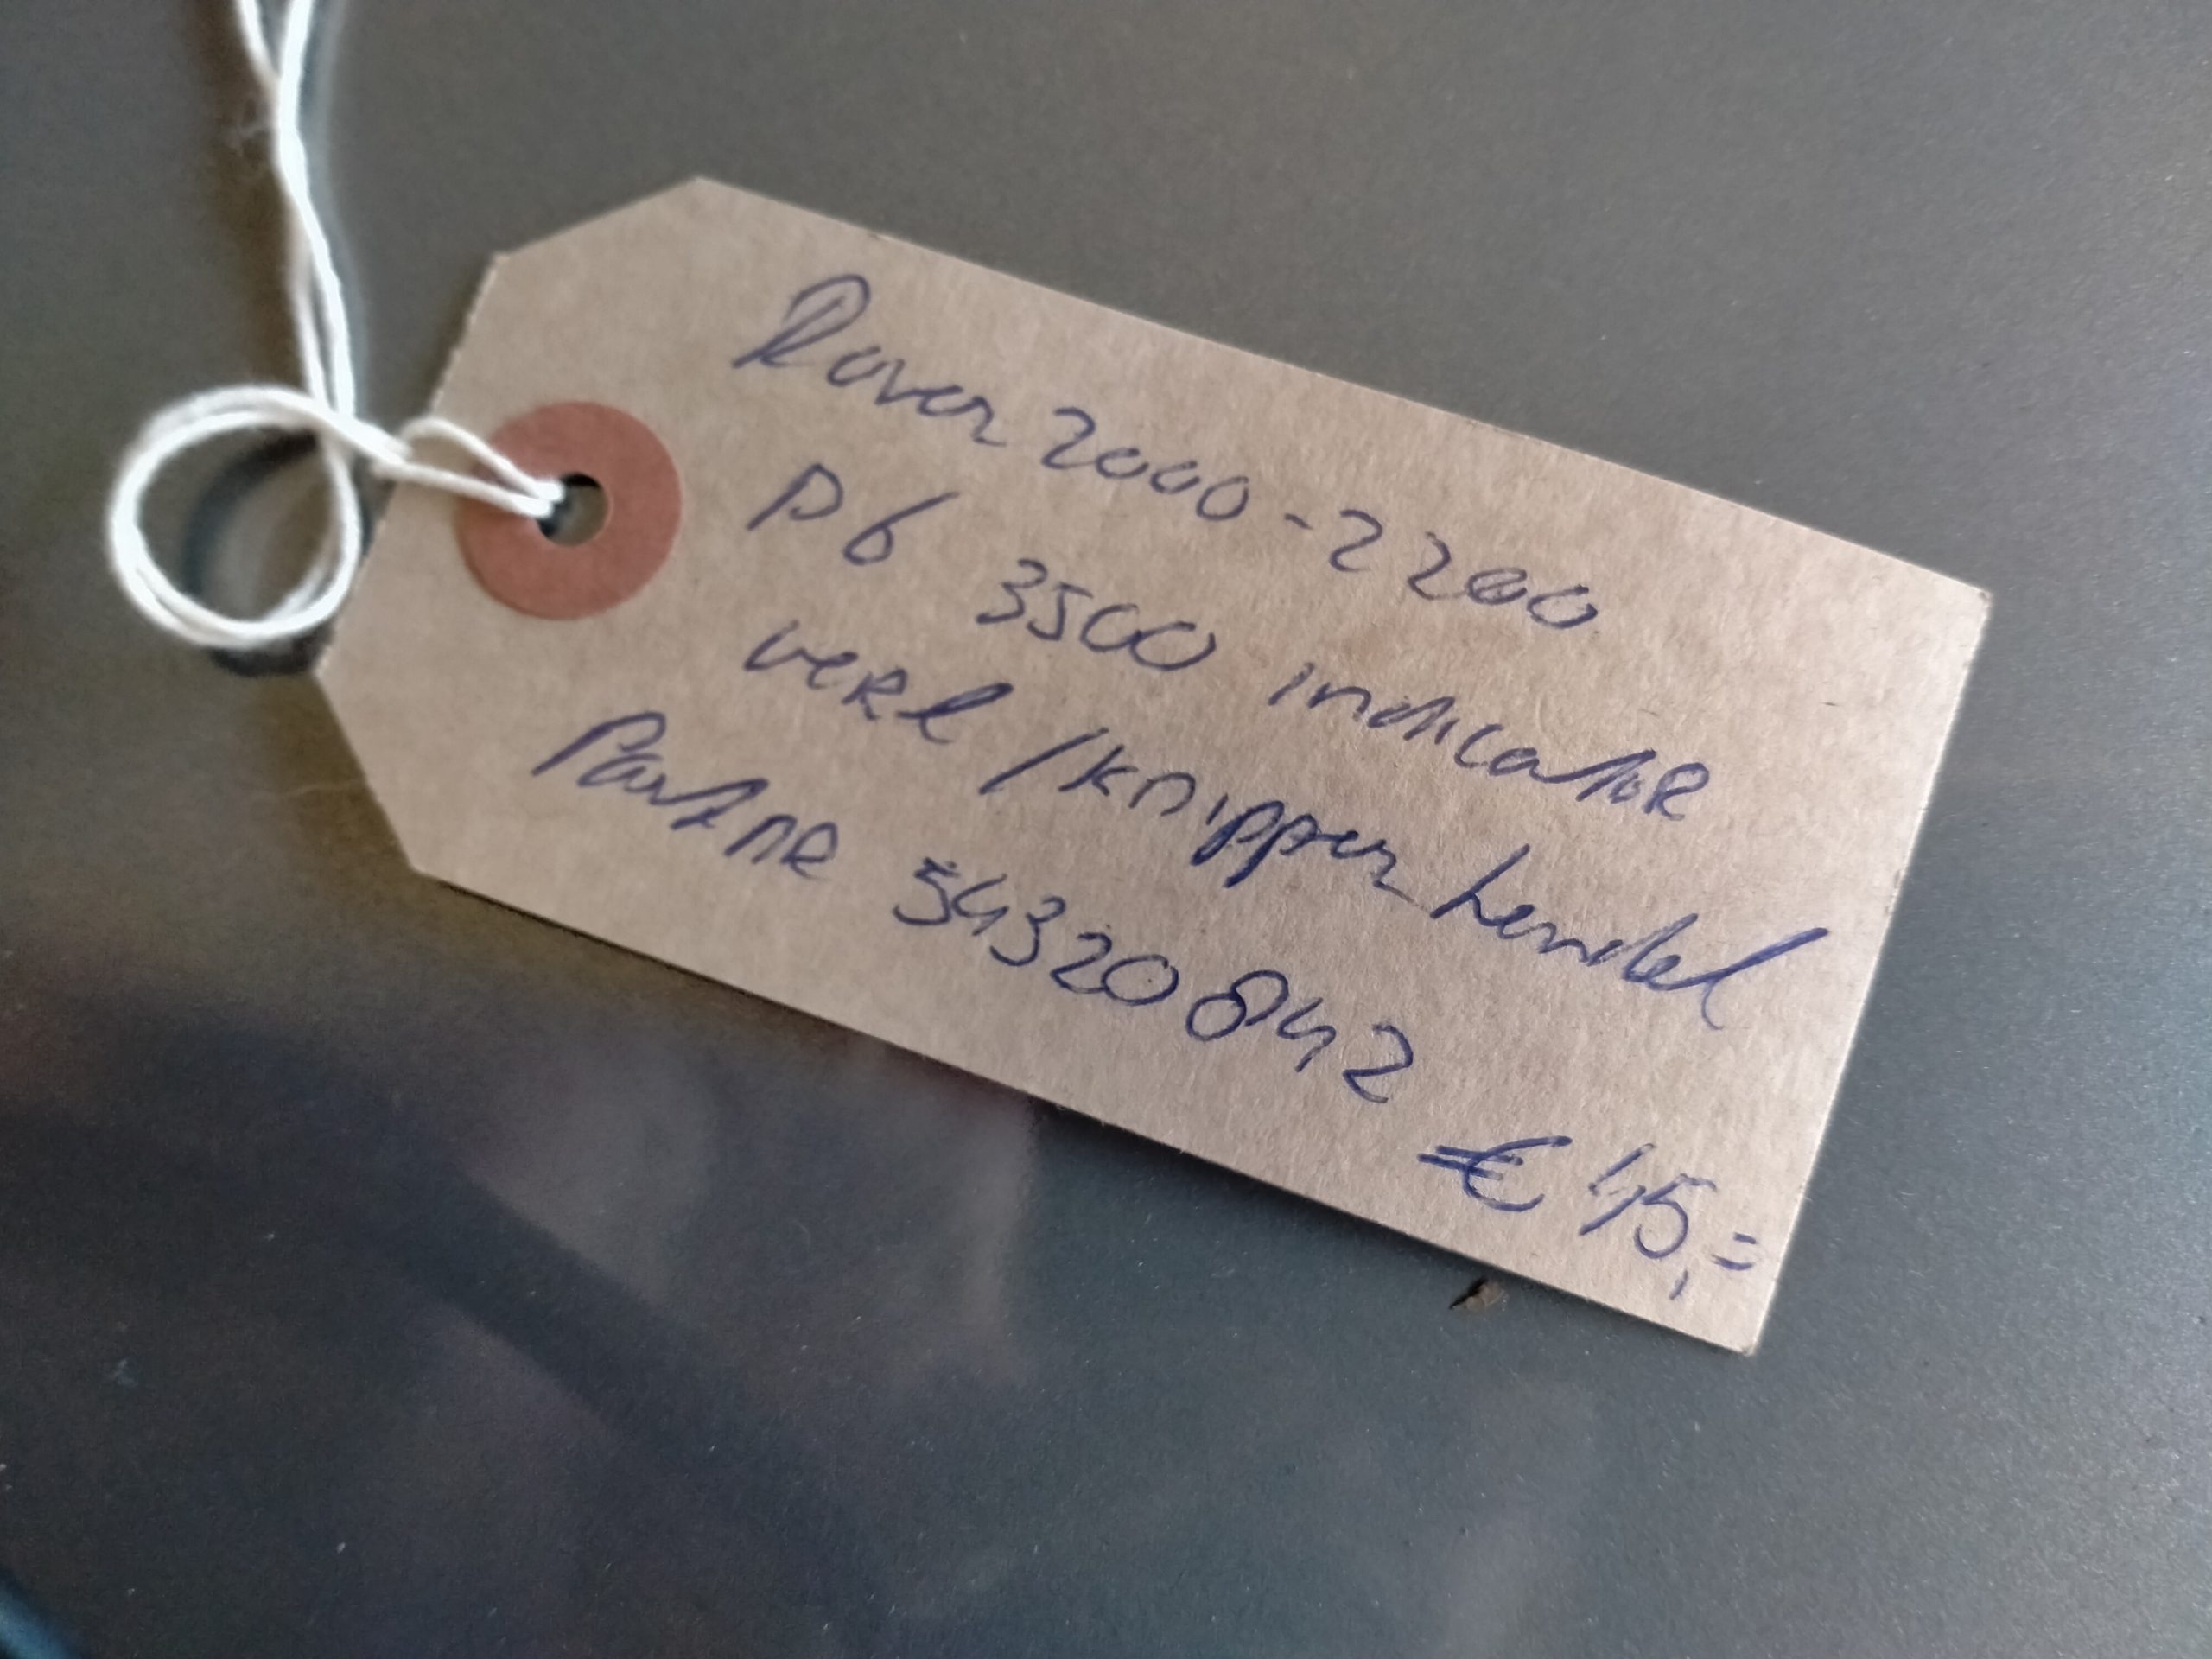 Rover 2000-2200
P6 3500 indicator
verl/knipper hendel
Partnr 54320842
€ 45,=